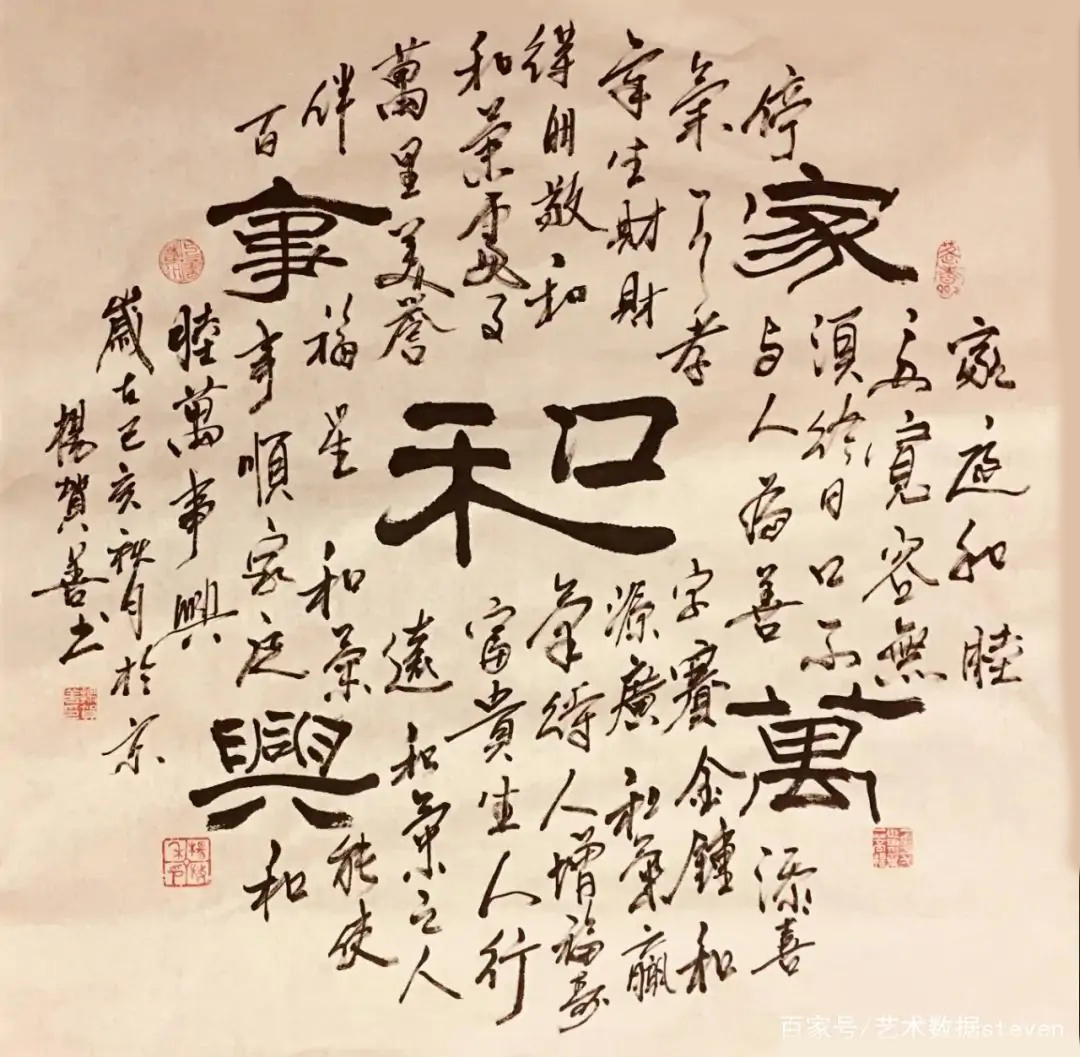 家和萬事興
家庭和睦
寬容無
須終日口不
停与人為善添喜
氣一个孝字賽金鐘和
氣生財財源廣和氣贏
得朋敬和氣待人增福壽
和氣處富貴生人行
萬里美譽遠和氣之人
伴福星和氣能使
百事順家庭和
睦萬事興
歲在己亥秋月於京
楊賀善书
百家号/艺术数据steven